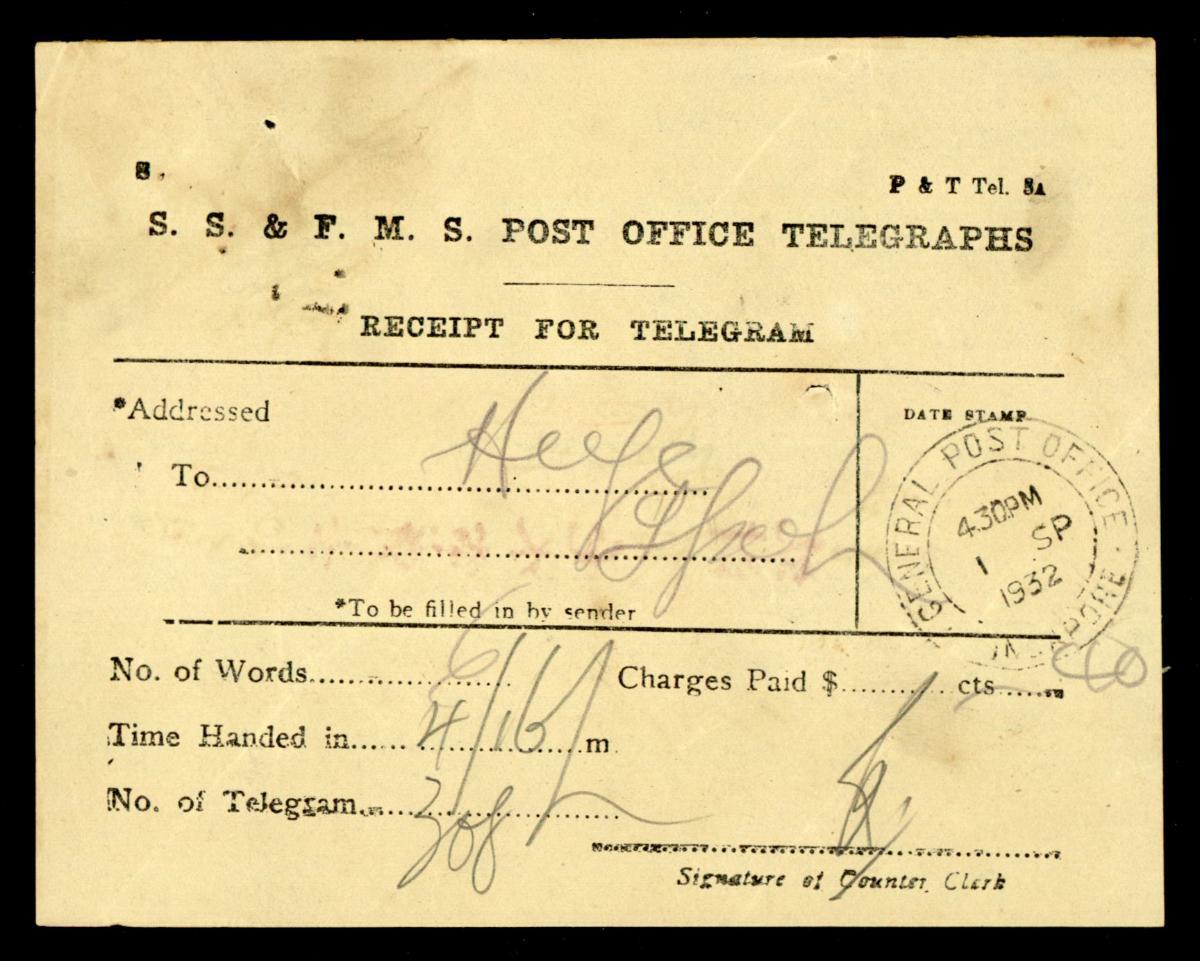 P & T Tel. 5A
S. S. & F. M. S. POST OFFICE TELEGRAPHS
RECEIPT FOR TELEGRAM
*Addressed
To
*To be filled in by sender
DATE STAMP
GENERAL POST OFFICE
4.30PM
1 SP
1932
No. of Words 6
Charges Paid $ cts
Time Handed in 4/16 m
No. of Telegram 308
Signature of Counter Clerk